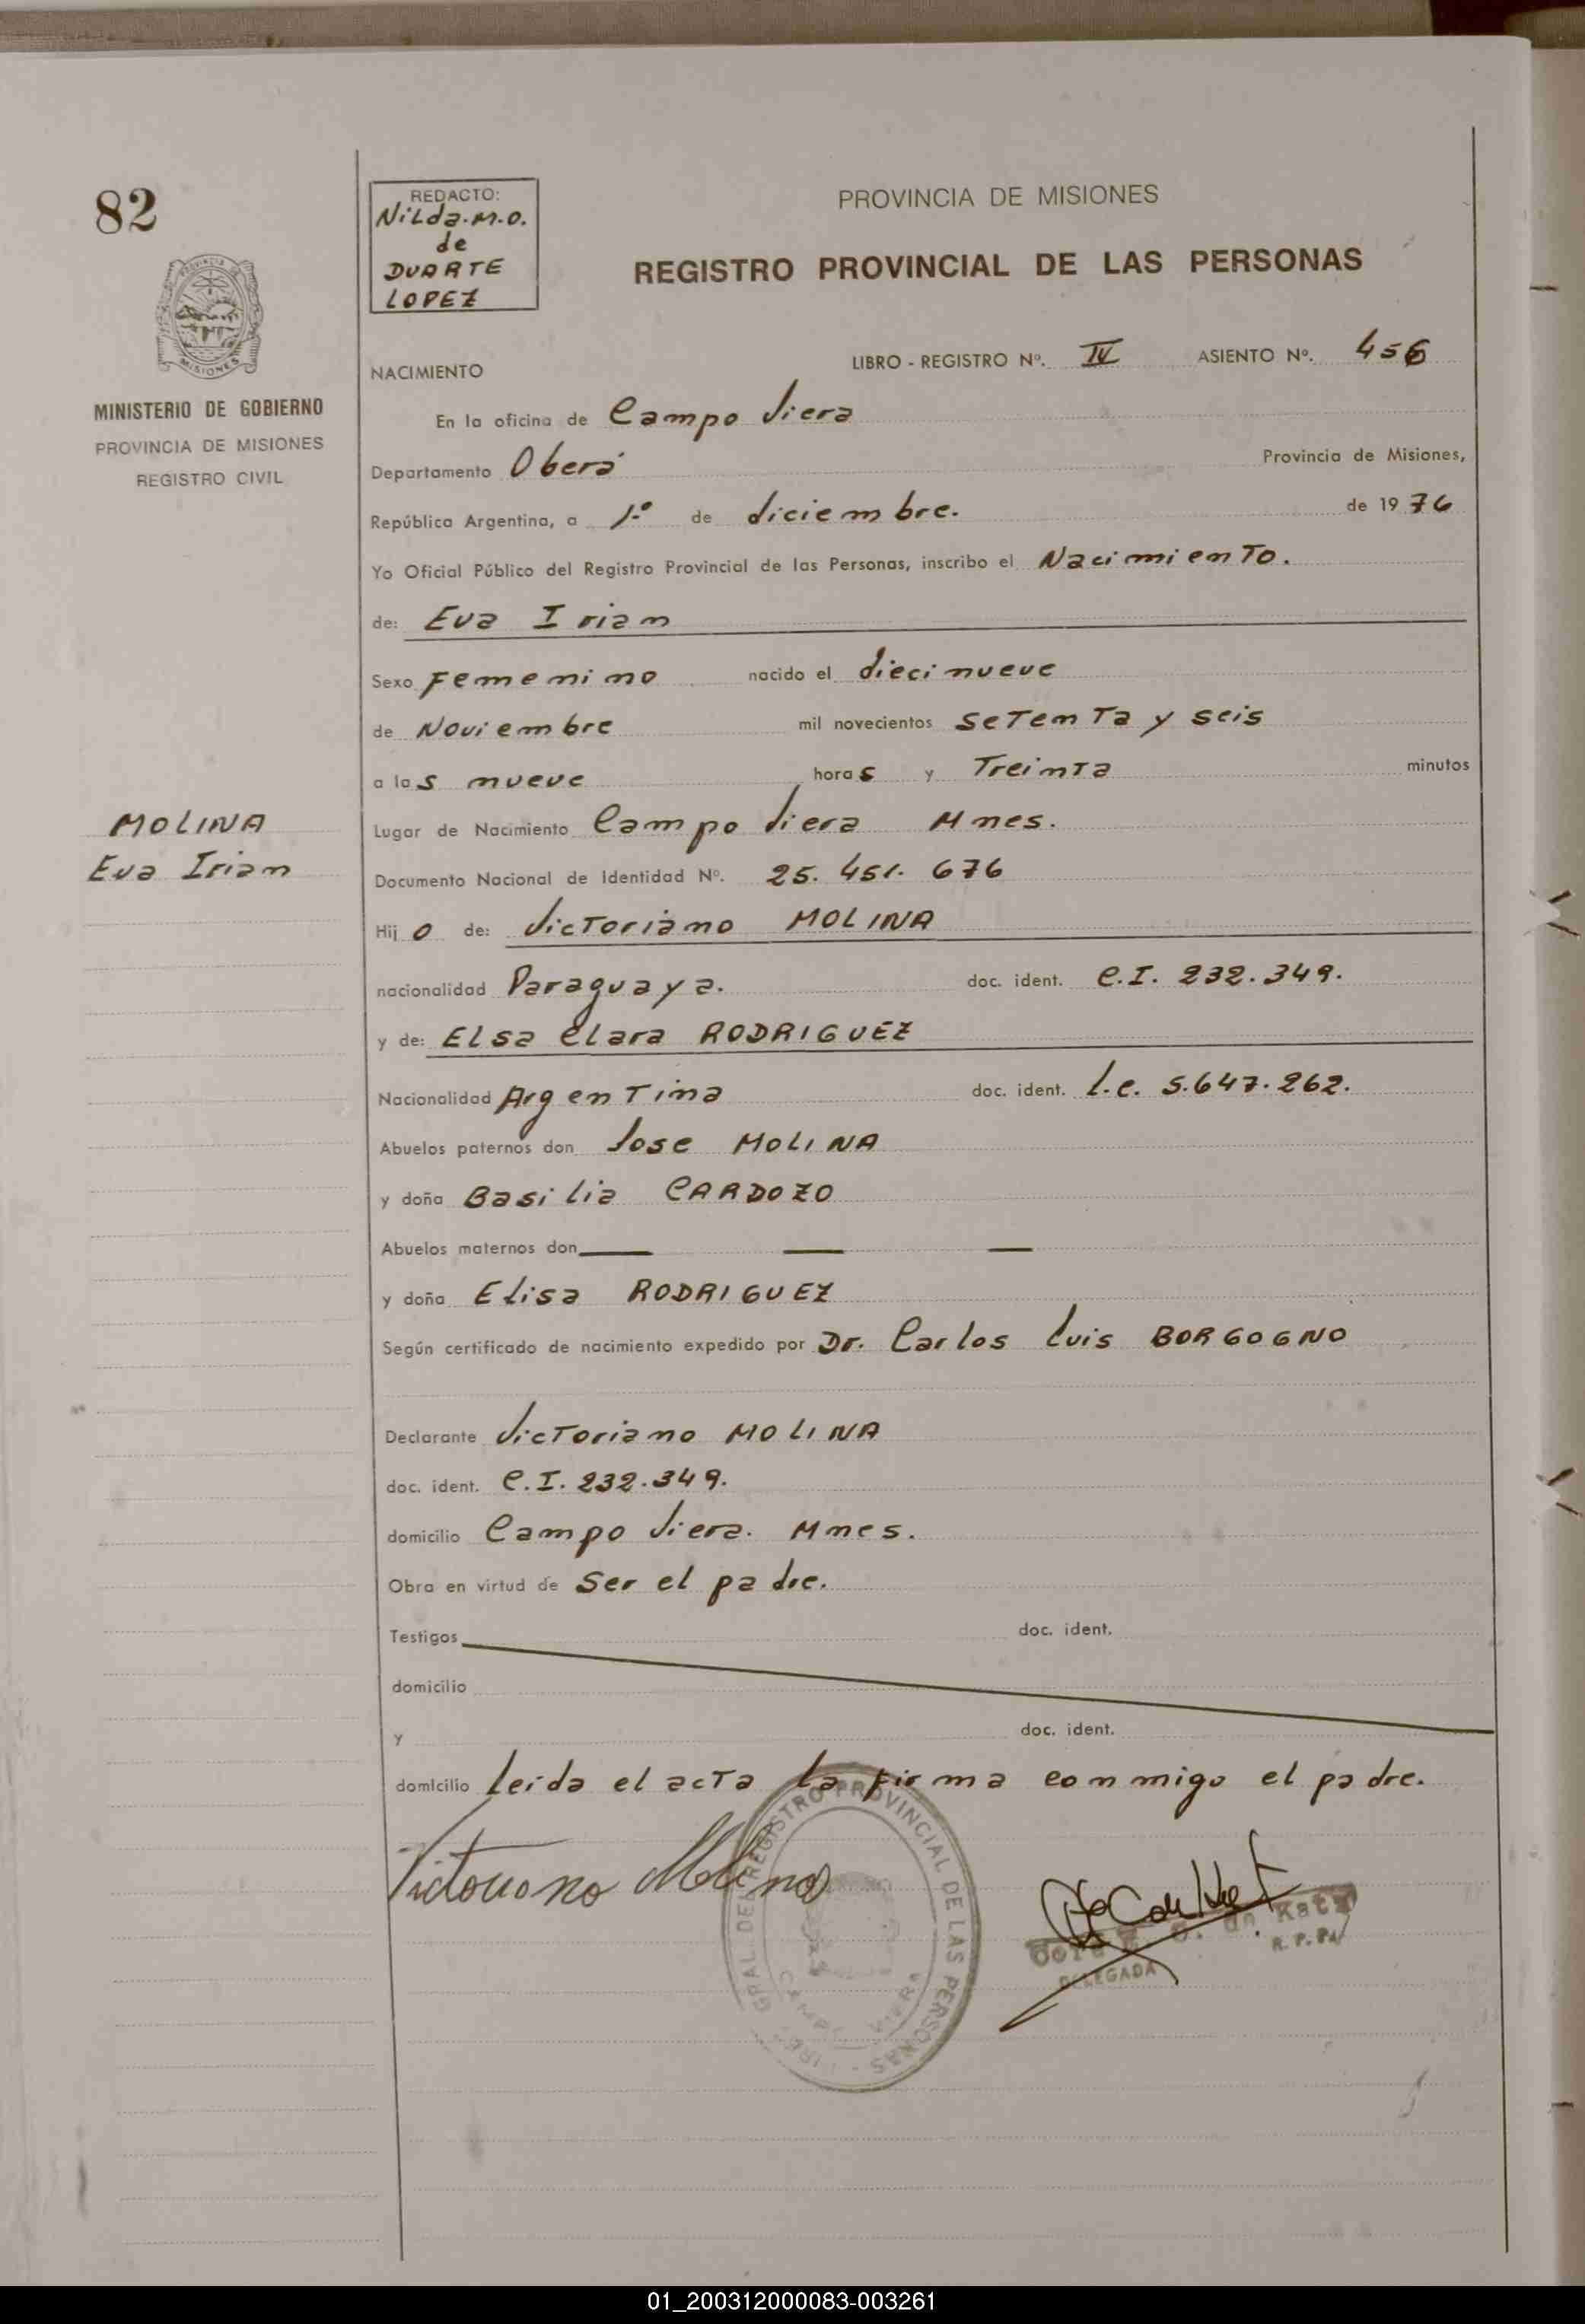 82
REDACTO:
Nilda.M.O.
de
DUARTE
LOPEZ
PROVINCIA DE MISIONES
REGISTRO PROVINCIAL DE LAS PERSONAS
MISIONES
MINISTERIO DE GOBIERNO
PROVINCIA DE MISIONES
REGISTRO CIVIL
NACIMIENTO LIBRO - REGISTRO Nº. IV ASIENTO Nº. 456
En la oficina de Campo Viera
Departamento Oberá Provincia de Misiones,
República Argentina, a 1º de diciembre. de 1976
Yo Oficial Público del Registro Provincial de las Personas, inscribo el Nacimiento.
de: Eva Irian
Sexo Femenino nacido el diecinueve
de Noviembre mil novecientos setenta y seis
a las nueve horas y Treinta minutos
MOLINA
Eva Irian
Lugar de Nacimiento Campo Viera Mnes.
Documento Nacional de Identidad Nº. 25.451.676
Hijo de: Victoriano MOLINA
nacionalidad Paraguaya. doc. ident. C.I. 232.349.
y de: Elsa Clara RODRIGUEZ
Nacionalidad Argentina doc. ident. L.C. 5.647.262.
Abuelos paternos don Jose MOLINA
y doña Basilia CARDOZO
Abuelos maternos don — — —
y doña Elisa RODRIGUEZ
Según certificado de nacimiento expedido por Dr. Carlos Luis BORGOGNO
Declarante Victoriano MOLINA
doc. ident. C.I. 232.349.
domicilio Campo Viera. Mnes.
Obra en virtud de Ser el padre.
Testigos doc. ident.
domicilio
y doc. ident.
domicilio Leida el acta la firma conmigo el padre.
Victoriano Molina
GRAL. DEL REGISTRO PROVINCIAL DE LAS PERSONAS
CAMPO VIERA
de Katz
R.P.P.
DELEGADA
01_200312000083-003261